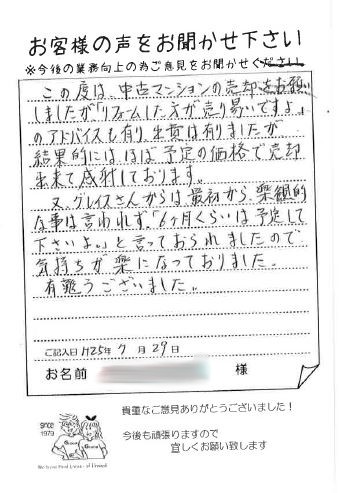 お客様の声をお聞かせ下さい
※今後の業務向上の為ご意見をお聞かせください
この度は、中古マンションの売却をお願い
しましたが「リフォームした方が売り易いですよ」
のアドバイスも有り、出費は有りましたが
結果的にはほぼ予定の価格で売却
出来て感謝しております。
又、グレイスさんからは最初から、楽観的
な事は言われず、「6ヶ月くらいは予定して
下さいよ。」と言っておられましたので
気持ちが楽になっておりました。
有難うございました。
ご記入日 H25年 7月 29日
お名前 様
貴重なご意見ありがとうございました！
since
1979
今後も頑張りますので
宜しくお願い致します